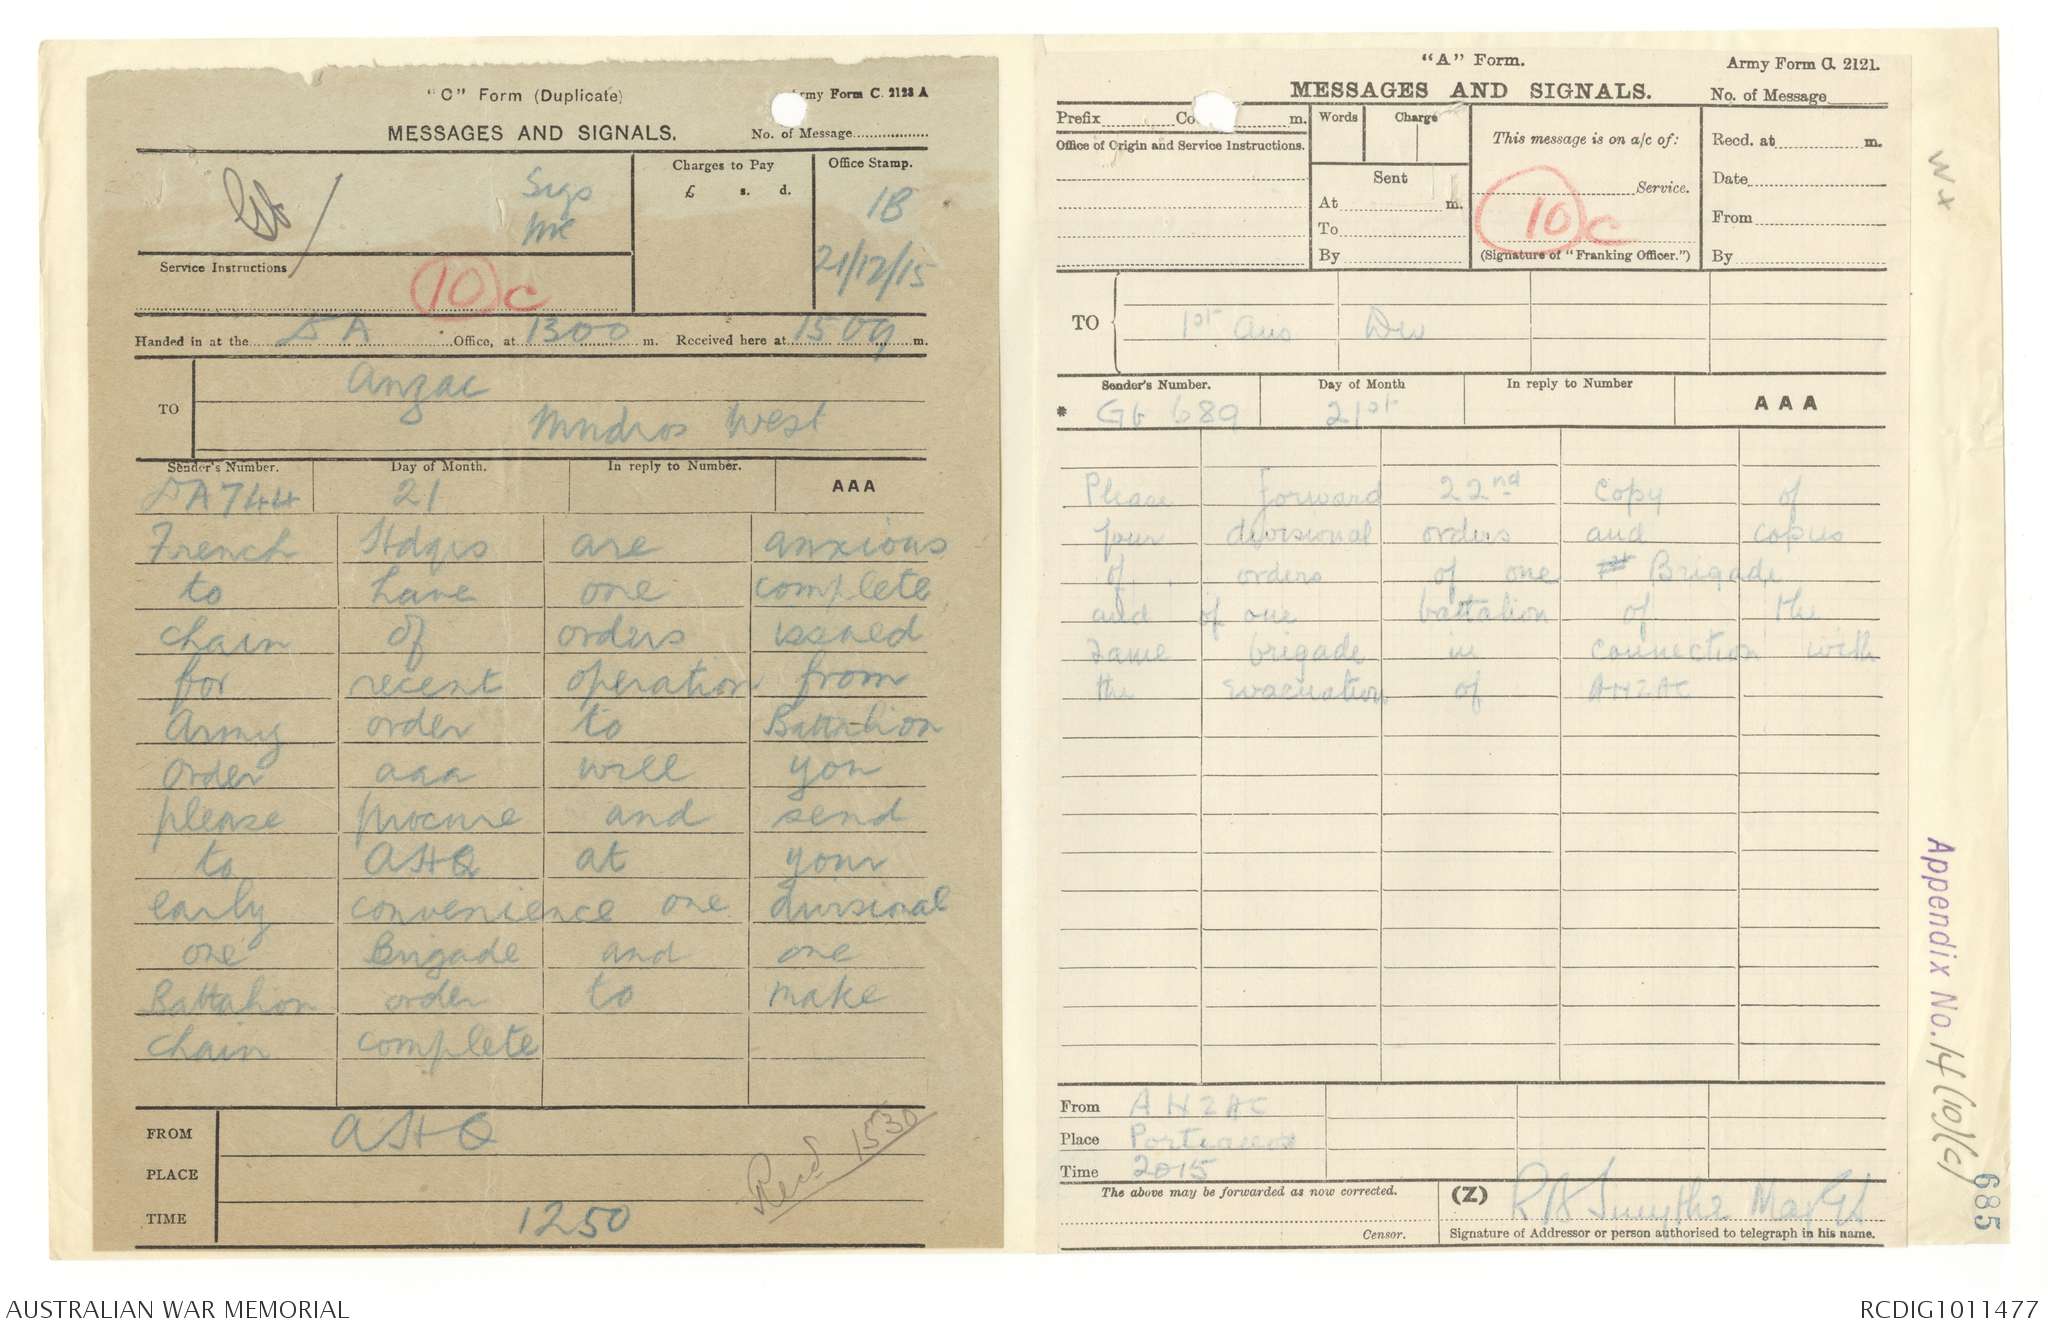 "C" Form (Duplicate)
Army Form C. 2123 A
MESSAGES AND SIGNALS.
No. of Message
Charges to Pay
£ s. d.
Office Stamp.
Sigs
1B
21/12/15
Service Instructions
10 c
Handed in at the DA Office, at 1300 m. Received here at 1509 m.
TO
Anzac
Mudros West
Sender's Number.
Day of Month.
In reply to Number.
AAA
DA744
21
French Hdqrs are anxious
to have one complete
chain of orders issued
for recent operation from
Army order to Battalion
Order aaa will you
please procure and send
to AHQ at your
early convenience one divisional
one Brigade and one
Battalion order to make
chain complete
FROM
AHQ
PLACE
TIME
1250
Recd 1530
"A" Form.
Army Form C. 2121.
MESSAGES AND SIGNALS.
No. of Message
Prefix Co m.
Words
Charge
This message is on a/c of:
Recd. at m.
Office of Origin and Service Instructions.
Sent
Service.
Date
At m.
10 c
From
To
By
(Signature of "Franking Officer.")
By
TO
1st Aus Div
Sender's Number.
Day of Month
In reply to Number
AAA
* Gb 689
21st
Please forward 22nd copy of
your divisional orders and copies
of orders of one Brigade
and of one battalion of the
same brigade in connection with
the evacuation of ANZAC
From ANZAC
Place Portianos
Time 2015
The above may be forwarded as now corrected.
(Z)
Smythe Maj GS
Censor.
Signature of Addressor or person authorised to telegraph in his name.
Appendix No. 14(10)(c)
685
AUSTRALIAN WAR MEMORIAL
RCDIG1011477